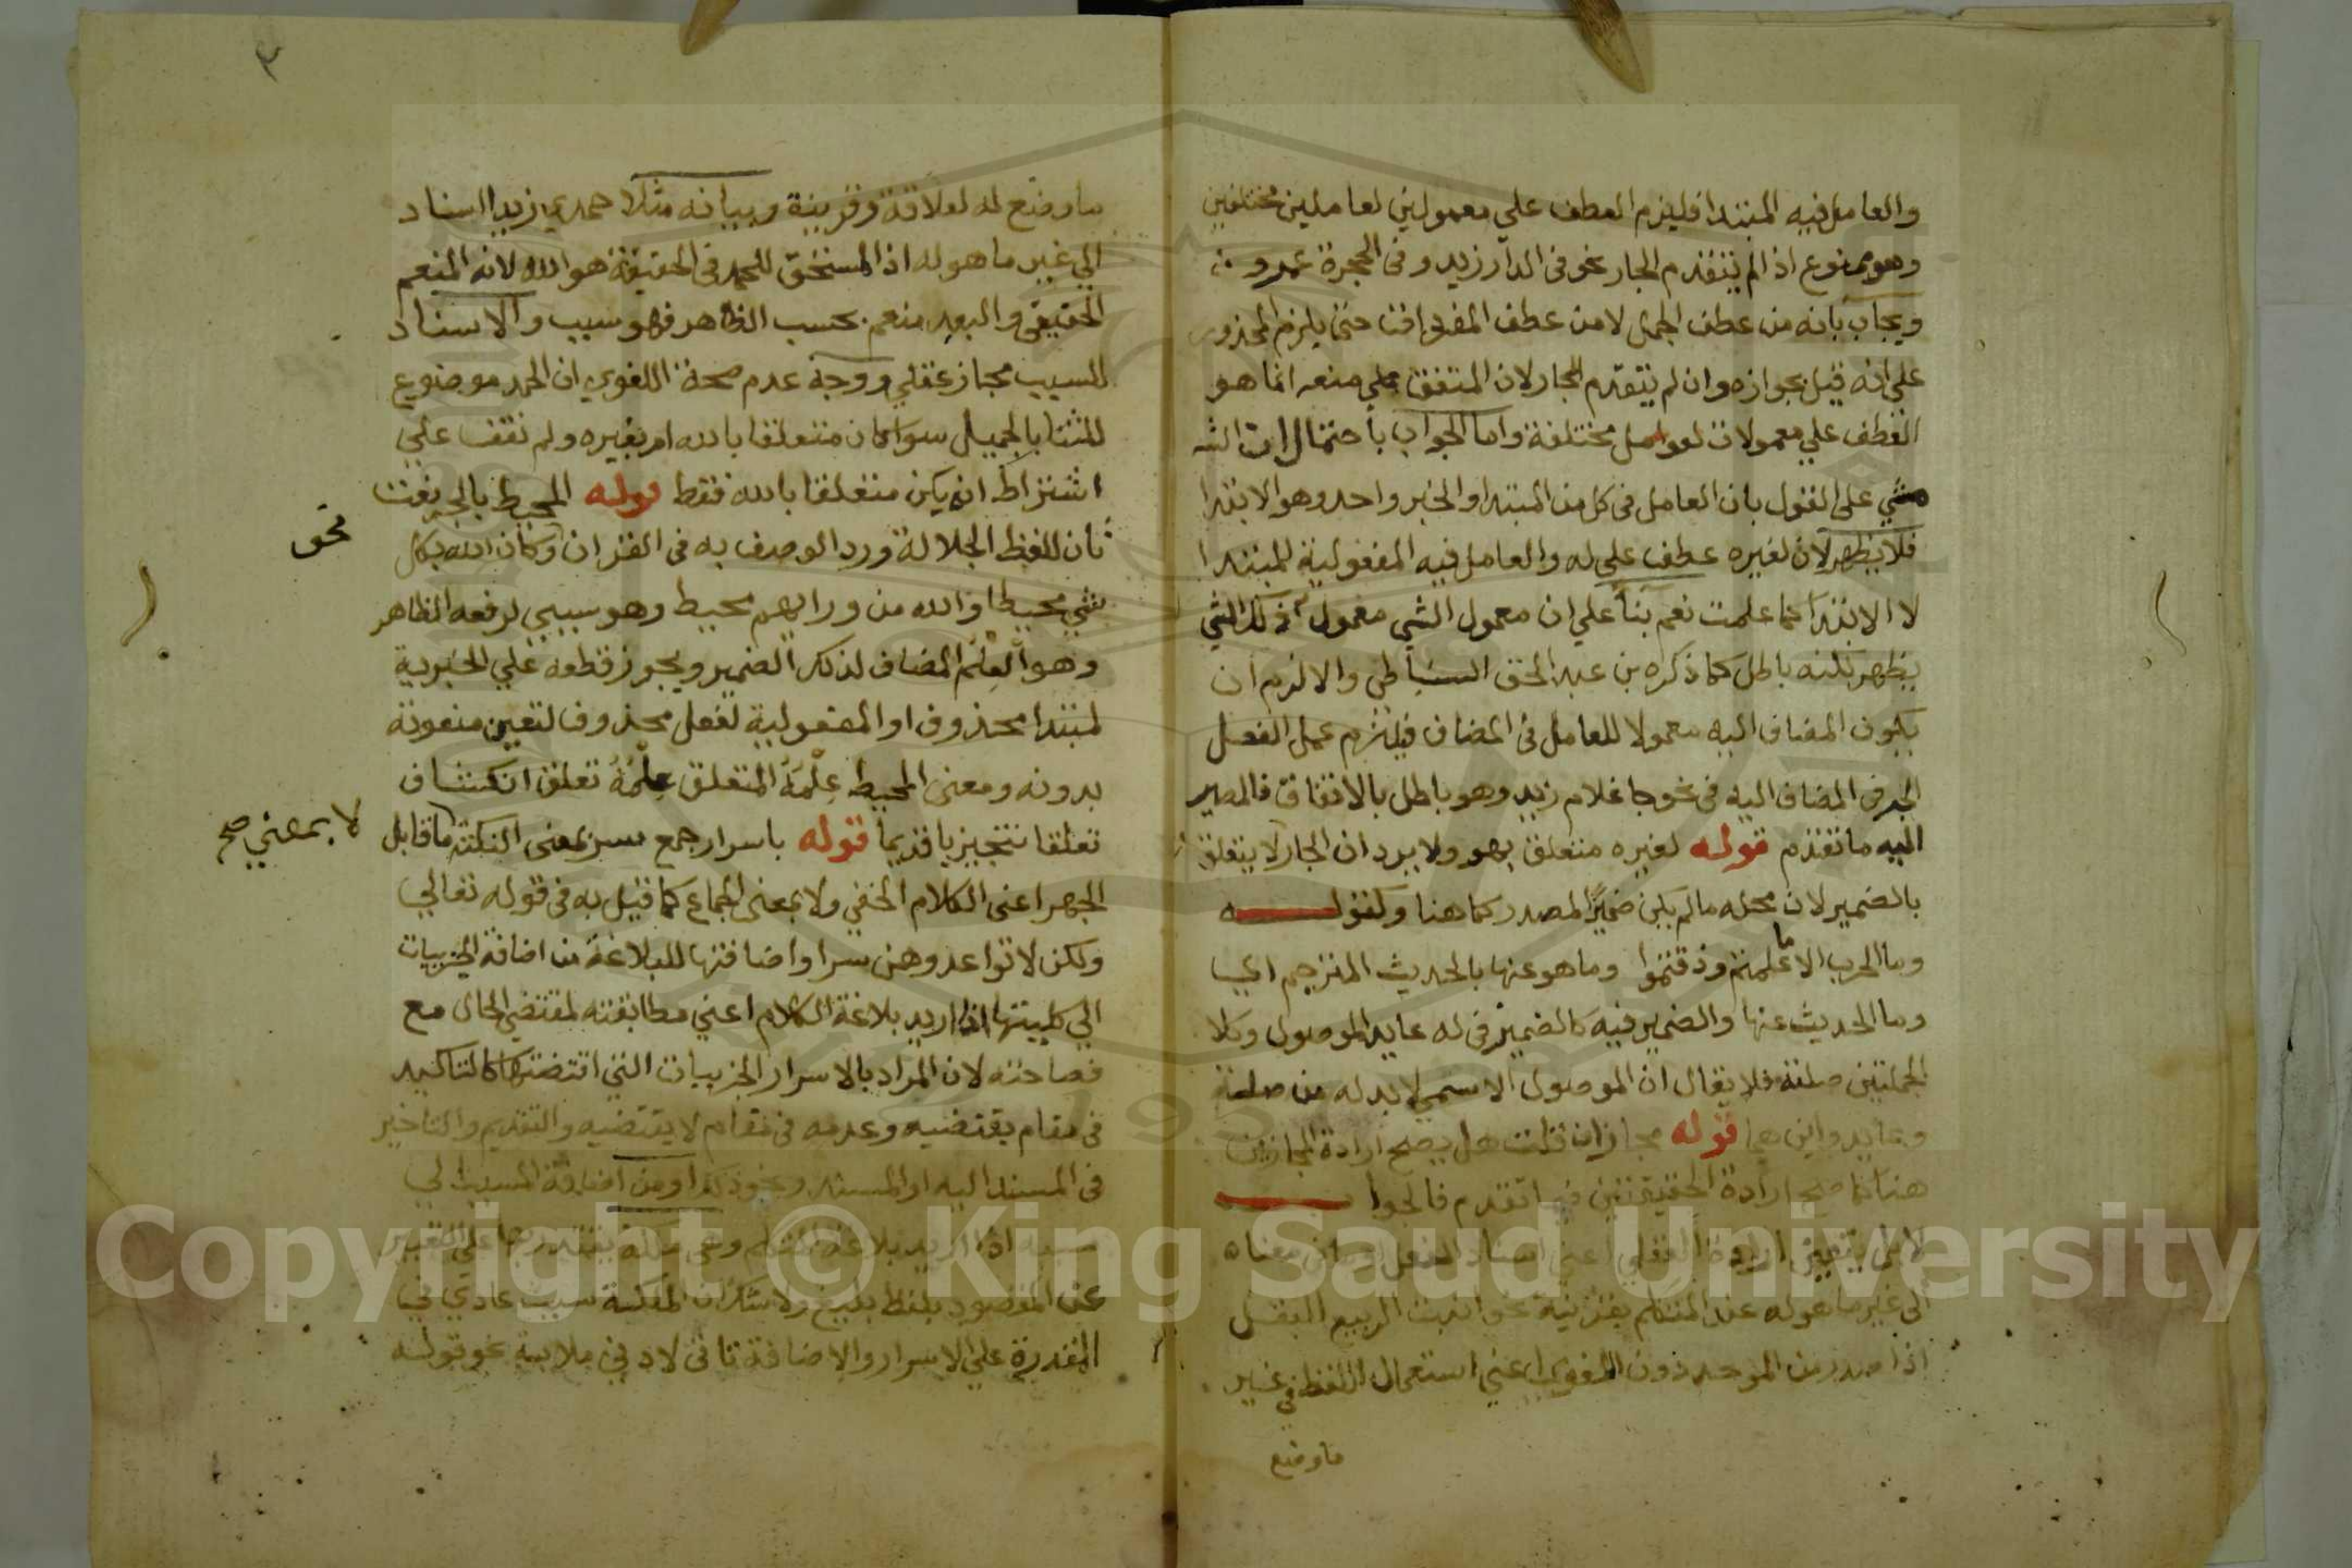 والعامل فيه المبتدا فليزم العطف علي معمولين لعاملين مختلفين
وهو ممنوع اذ الم يتقدم الجار نحو في الدار زيد و في الحجرة عمرو
ويجاب بانه من عطف الجمل لا من عطف المفردات حتي يلزم المحذور
علي انه قيل بجوازه وان لم يتقدم الجار لان المتفق علي منعه انما هو
العطف علي معمولات لعوامل مختلفة واما الجواب باحتمال ان الشـ
مشي علي القول بان العامل في كل من المبتدا والخبر واحد وهو الابتدا
فلا يظهر لان لغيره عطف علي له والعامل فيه المفعولية للمبتدا
لا الابتدا كما علمت نعم بنا علي ان معمول الشي معمول لذلك الشي
يظهر لكنه باطل كما ذكره بن عبد الحق السنباطي والا لزم ان
يكون المضاف اليه معمولا للعامل في المضاف فيلزم عمل الفعل
الجر في المضاف اليه في نحو جا غلام زيد وهو باطل بالاتفاق فالمصير
اليه ما تقدم قوله لغيره متعلق بهو ولا يرد ان الجار لا يتعلق
بالضمير لان محله ما لم يكن ضمير المصدر كما هنا وكقوله
وما الحرب الا ما علمتم وذقتموا وما هو عنها بالحديث المترجم اي
وما الحديث عنها والضمير فيه كالضمير في له عايد الموصول وكلا
الجملتين صلته فلا يقال ان الموصول الاسمي لا بد له من صلة
وعايد واين هما قوله مجازان قلت هل يصح ارادة المجازين
هنا كما صح ارادة الحقيقتين فيما تقدم فالجواب
لا بل يتعين ارادة العقلي اعني اسناد الفعل او ما في معناه
الي غير ما هو له عند المتكلم بقرينة نحو انبت الربيع البقل
اذا صدر من الموحد دون اللغوي اعني استعمال اللفظ في غير
ما وضع
٣
ما وضع له لعلاقة وقرينة وبيانه مثلا حمدي زيدا اسناد
الي غير ما هو له اذ المستحق للحمد في الحقيقة هو الله لانه المنعم
الحقيقي والعبد منعم بحسب الظاهر فهو سبب والاسناد
للسبب مجاز عقلي ووجه عدم صحة اللغوي ان الحمد موضوع
للثنا بالجميل سوا كان متعلقا بالله ام بغيره ولم نقف علي
اشتراط ان يكن متعلقا بالله فقط قوله المحيط بالجر نعت
ثان للفظ الجلالة ورد الوصف به في القران وكان الله بكل نحو
شي محيطا والله من ورايهم محيط وهو سببي لرفعه الظاهر
وهو العلم المضاف لذلك الضمير ويجوز قطعه علي الخبرية
لمبتدا محذوف او المفعولية لفعل محذوف لتعين منعوته
بدونه ومعني المحيط عِلْمُهُ المتعلق عِلْمُهُ تعلق انكشاف
تعلقا تنجيزيا قديما قوله باسرار جمع سر بمعني النكتة لا بمعني صح ما قابل
الجهر اعني الكلام الخفي ولا بمعني الجماع كما قيل به في قوله تعالي
ولكن لا تواعدوهن سرا واضافتها للبلاغة من اضافة الجزييات
الي كليتها اذا اريد بلاغة الكلام اعني مطابقته لمقتضي الحال مع
فصاحته لان المراد بالاسرار الجزييات التي اقتضتها كالتاكيد
في مقام يقتضيه وعدمه في مقام لا يقتضيه والتقديم والتاخير
في المسند اليه او المسند ونحو ذلك او من اضافة المسبب الي
سببه اذا اريد بلاغة المتكلم وهي ملكة يقتدر بها علي التعبير
عن المقصود بلفظ بليغ ولا شك ان الملكة سبب عادي في
المقدرة علي الاسرار والاضافة تاتي لادني ملابسة نحو قوله
Copyright © King Saud University